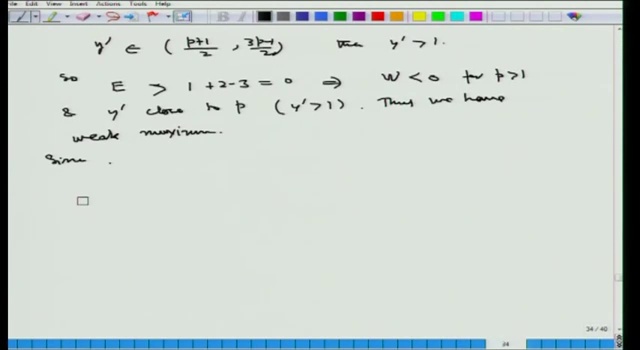 File Edit View Insert Actions Tools Help
y' ∈ ( (p+1)/2 , (3p-1)/2 ) then y' > 1.
So E > 1 + 2 - 3 = 0 ⇒ W < 0 for p > 1
& y' close to p (y' > 1). Thus we have
weak maximum.
Since .
34 / 40
34